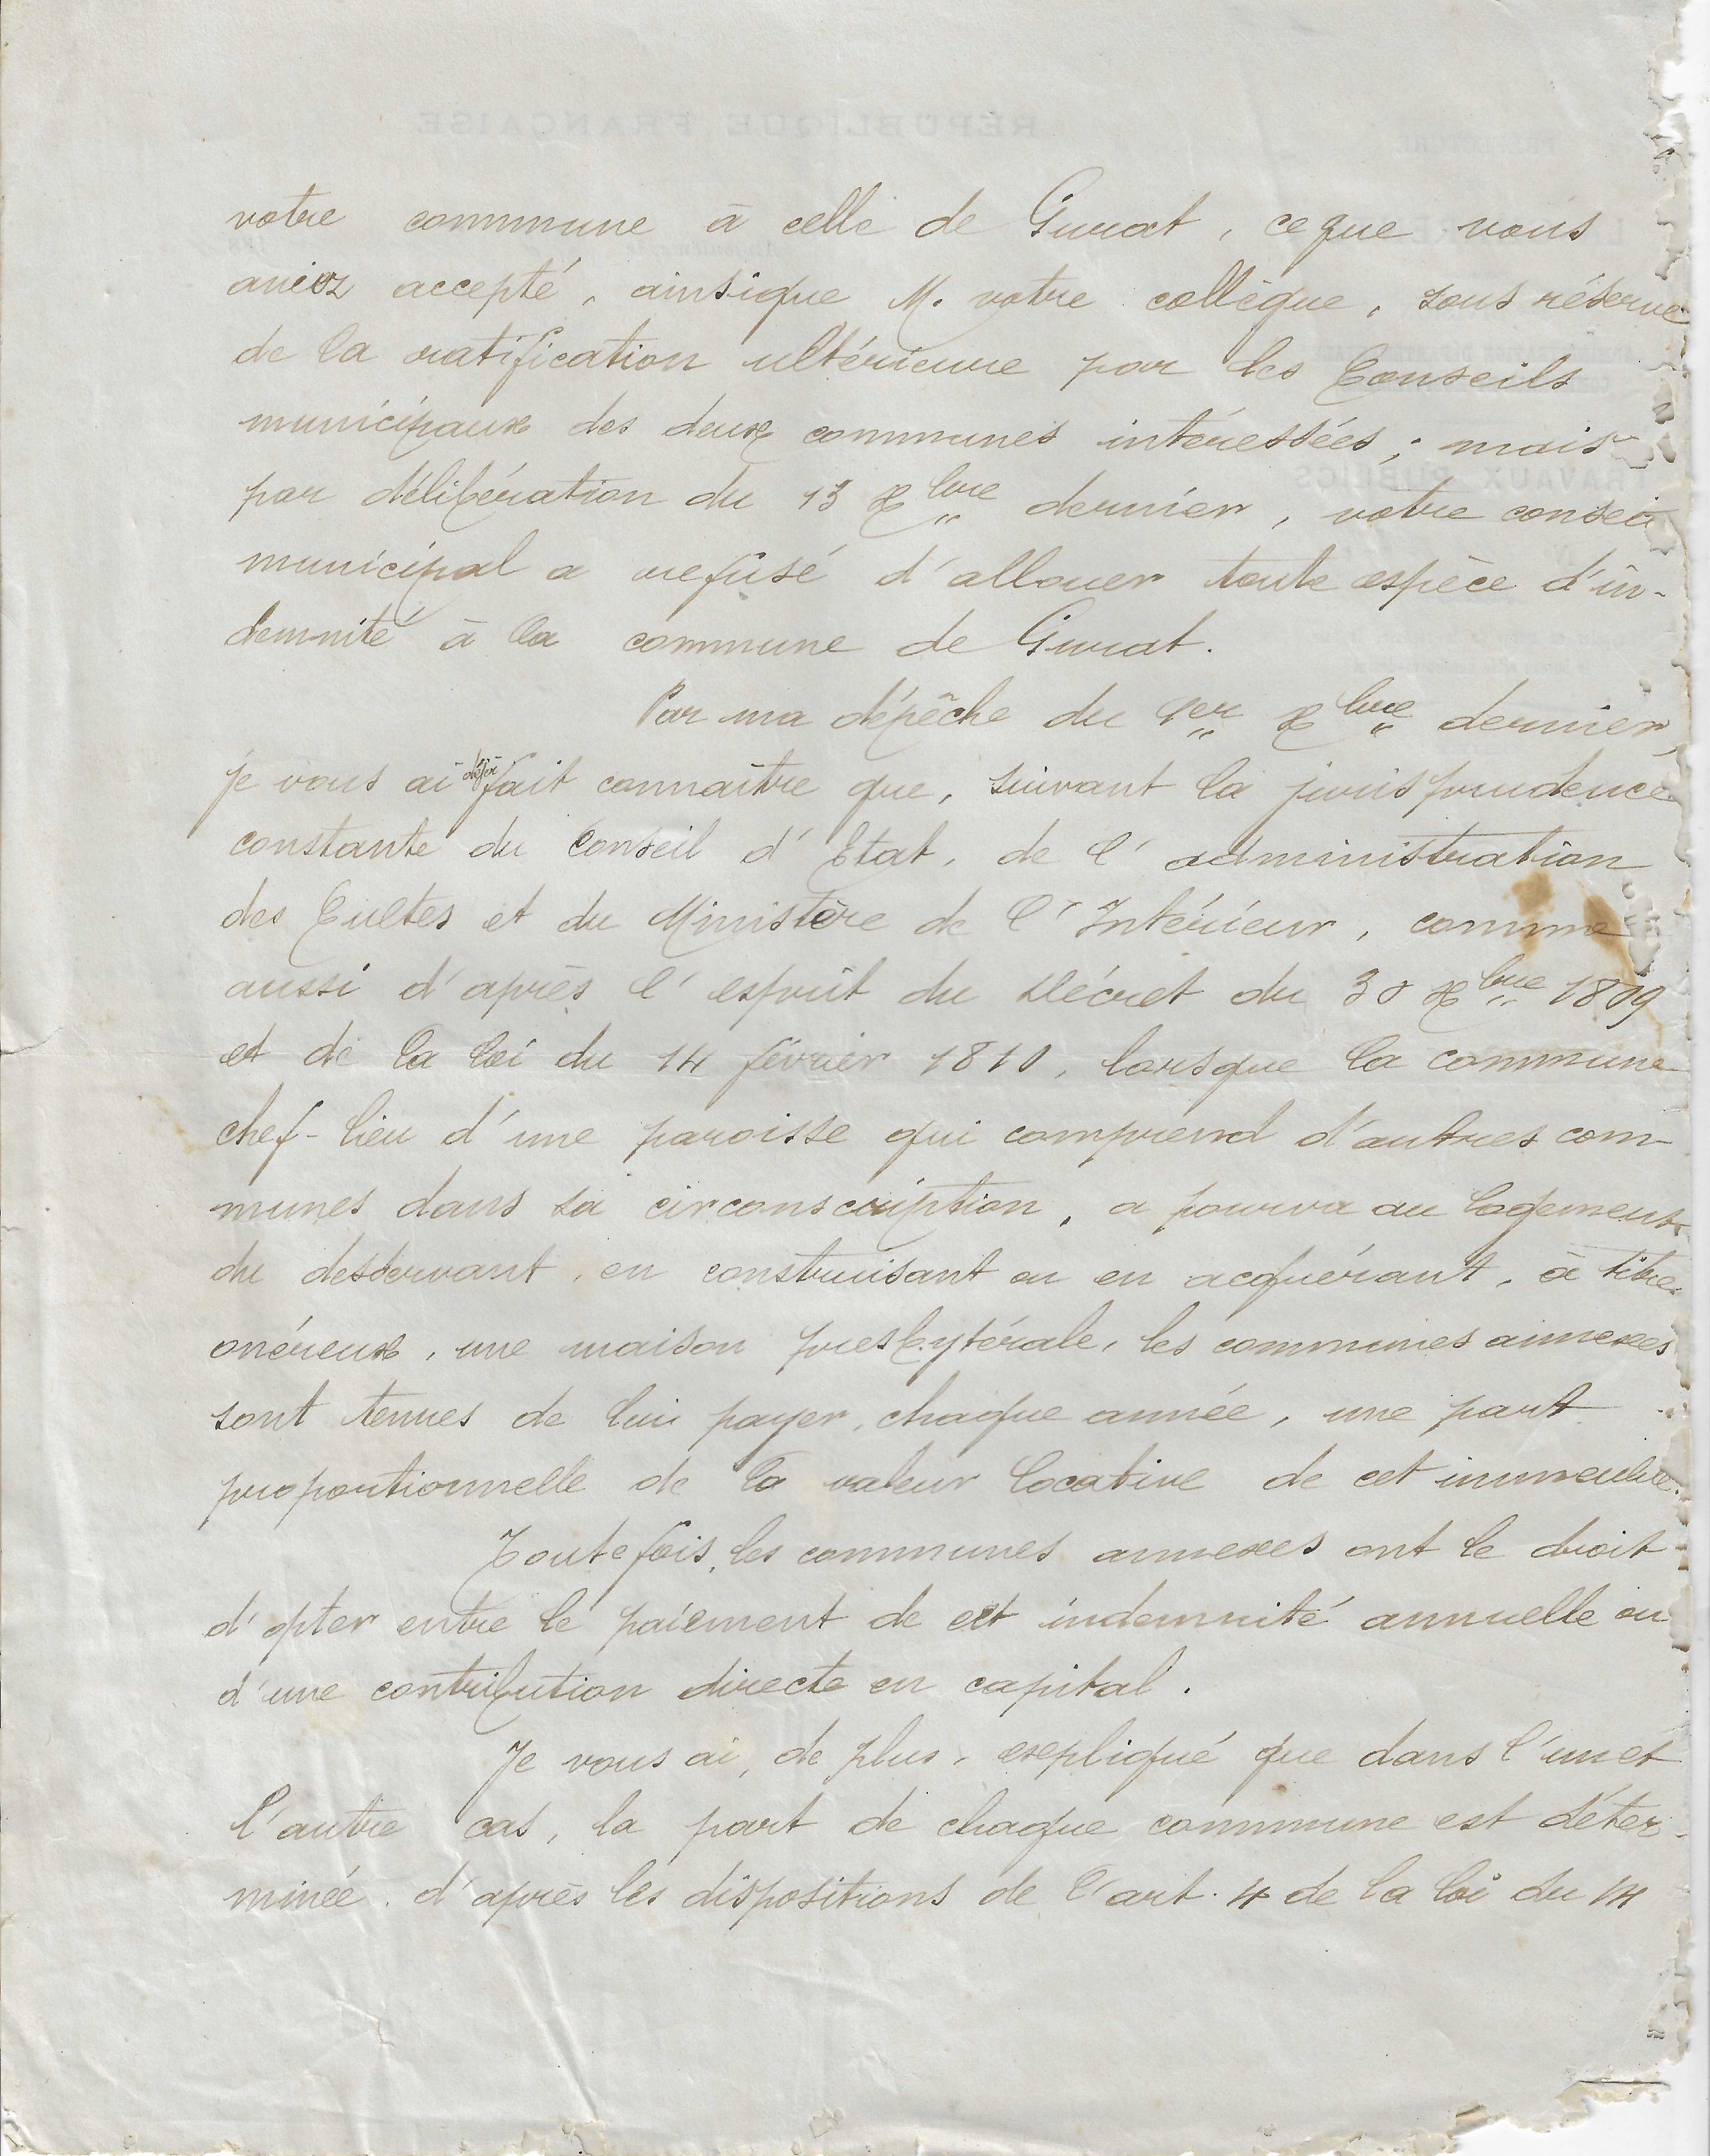 votre commune à celle de Gurat, ce que vous
aviez accepté, ainsique M. votre collègue, sous réserve
de la ratification ultérieure par les Conseils
municipaux des deux communes intéressées; mais
par délibération du 13 Xbre dernier, votre conseil
municipal a refusé d'allouer toute espèce d'in-
demnité à la commune de Gurat.
Par ma dépêche du 1er Xbre dernier,
je vous ai déjà fait connaître que, suivant la jurisprudence
constante du Conseil d'Etat, de l'administration
des Cultes et du Ministère de l'Intérieur, comme
aussi d'après l'esprit du Décret du 30 Xbre 1809
et de la loi du 14 février 1810, lorsque la commune
chef-lieu d'une paroisse qui comprend d'autres com-
munes dans sa circonscription, a pourvu au logement
du desservant, en construisant ou en acquérant, à titre
onéreux, une maison presbytérale, les communes annexes
sont tenues de lui payer, chaque année, une part
proportionnelle de la valeur locative de cet immeuble.
Toutefois, les communes annexes ont le droit
d'opter entre le paiement de cet indemnité annuelle ou
d'une contribution directe en capital.
Je vous ai, de plus, expliqué que dans l'un et
l'autre cas, la part de chaque commune est déter-
minée d'après les dispositions de l'art. 4 de la loi du 14